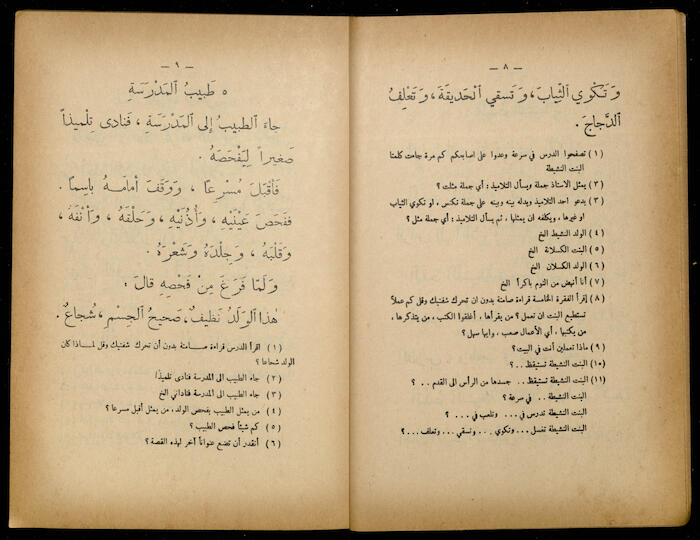 — ٨ —
وَتَكْوي الثِّيابَ، وَتَسقي الْحَديقَةَ، وَتَعْلِفُ
الدَّجاجَ.
(١) تصفحوا الدرس في سرعة وعدوا على اصابعكم كم مرة جاءت كلمتا
البنت النشيطة
(٢) يمثل الاستاذ جملة ويسأل التلاميذ: أي جملة مثلت؟
(٣) يدعو احد التلاميذ ويدله بينه وبينه على جملة تكنس، او تكوي الثياب
او غيرها، ويكلفه ان يمثلها، ثم يسأل التلاميذ: أي جملة مثل؟
(٤) الولد النشيط الخ
(٥) البنت الكسلانة الخ
(٦) الولد الكسلان الخ
(٧) أنا أنهض من النوم باكراً الخ
(٨) إقرأ الفقرة الخامسة قراءة صامتة بدون ان تحرك شفتيك وقل كم عملاً
تستطيع البنت ان تعمل؟ من يقرأها، أغلقوا الكتب، من يتذكرها،
من يكتبها، أي الأعمال صعب، وايها سهل؟
(٩) ماذا تعملين أنت في البيت؟
(١٠) البنت النشيطة تستيقظ..؟
(١١) البنت النشيطة تستيقظ.. جسدها من الرأس الى القدم..؟
البنت النشيطة.. في سرعة؟
البنت النشيطة تدرس في... وتلعب في...؟
البنت النشيطة تغسل... وتكوي... وتسقي... وتعلف...؟
— ٩ —
٥ طَبيبُ الْمَدْرَسَةِ
جاءَ الطَّبيبُ إلى الْمَدْرَسَةِ، فَنادى تِلْميذاً
صَغيراً لِيَفْحَصَهُ.
فَأَقْبَلَ مُسْرِعًا، وَوَقَفَ أمامَهُ باسِماً.
فَفَحَصَ عَيْنَيْهِ، وَأُذُنَيْهِ، وَحَلْقَهُ، وَأنْفَهُ،
وَقَلْبَهُ، وَجِلْدَهُ وَشَعْرَهُ.
وَلَمّا فَرَغَ مِنْ فَحْصِهِ قالَ:
هٰذا الْوَلَدُ نَظيفٌ، صَحيحُ الْجِسْمِ، شُجاعٌ.
(١) اقرأ الدرس قراءة صامتة بدون أن تحرك شفتيك وقل لماذا كان
الولد شجاعا؟
(٢) جاء الطبيب الى المدرسة فنادى تلميذا
(٣) جاء الطبيب الى المدرسة فناداني الخ
(٤) من يمثل الطبيب يفحص الولد، من يمثل أقبل مسرعا؟
(٥) كم شيئاً فحص الطبيب؟
(٦) أتقدر أن تضع عنواناً آخر لهذه القصة؟